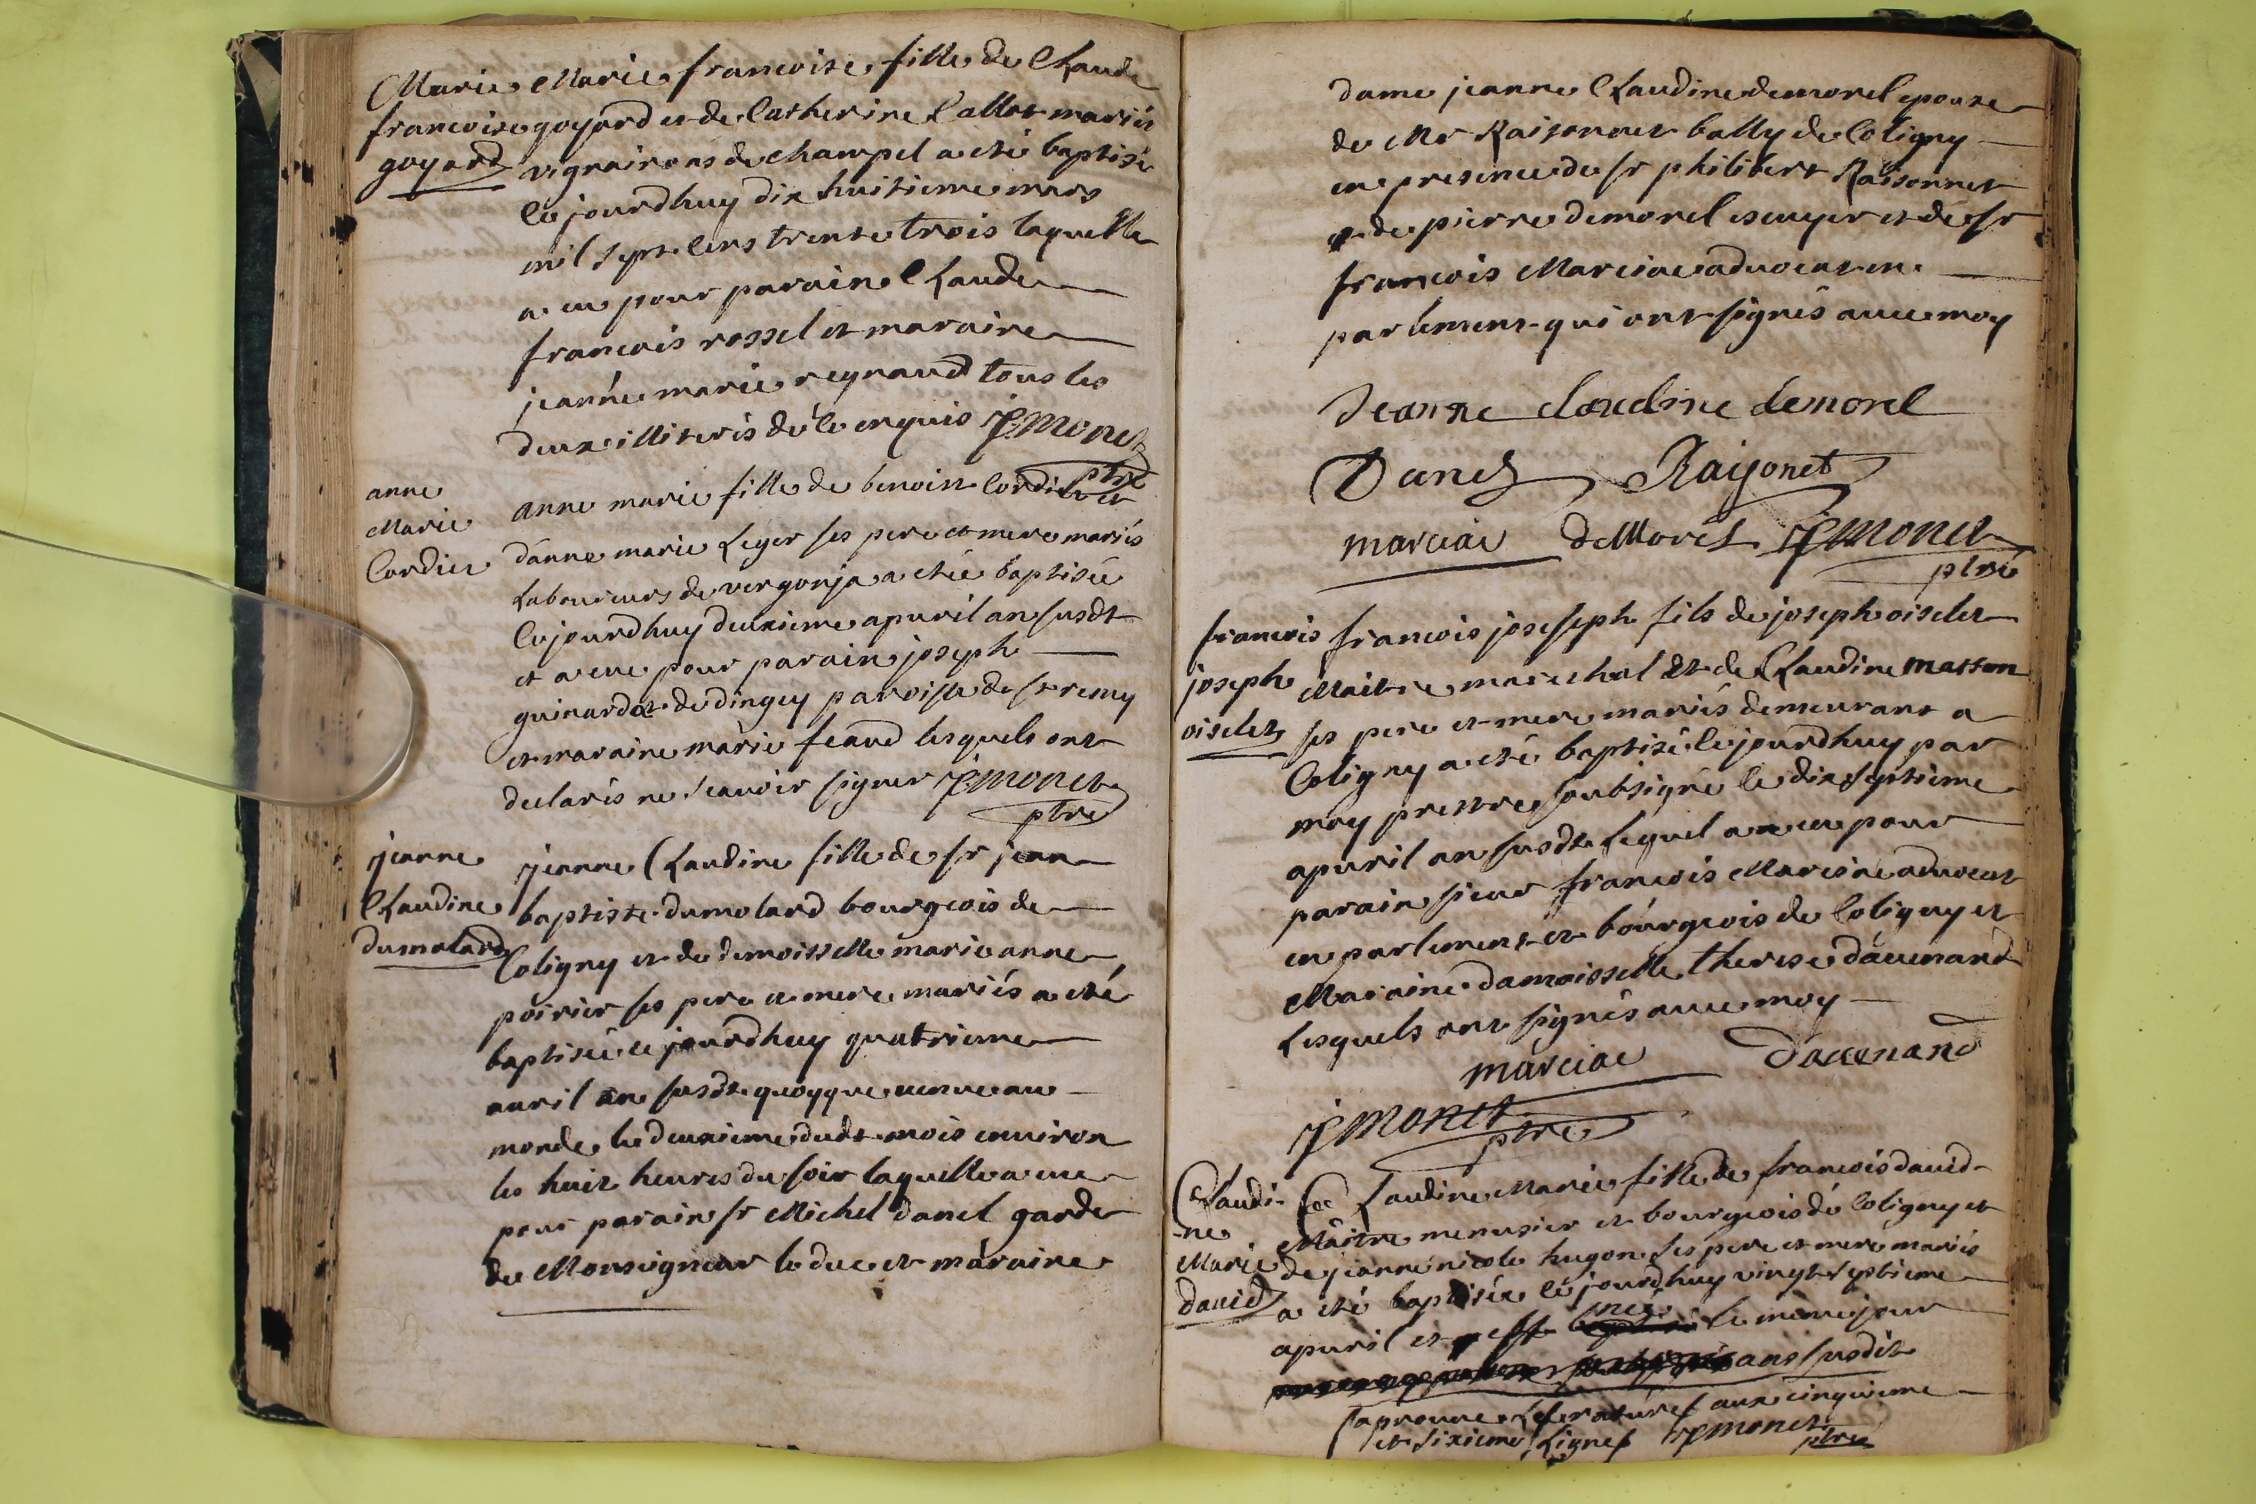 Marie
francoise
goyard
Marie francoise fille de Claude
goyard et de Catherine Callot mariés
vignairons de champel a eté baptisé
Ce jourdhuy dix huitieme mars
mil sept Cens trente trois laquelle
a eu pour parain Claude
francois rossel et maraine
jeanne marie reynaud tous les
deux illiterés de ce enquis JMonet
ptre
anne
Marie
Cordier
anne marie fille de benoist Cordier et
danne marie Leger ses pere et mere mariés
Laboureurs de vergonja a etée baptisée
Cejourdhuy deuxieme apuril an susdt
et a eue pour parain joseph
guinardot de dingey paroisse de st remy
et maraine marie feaud lesquels ont
declarés ne scauoir signer JMonet
ptre
jeanne
Claudine
dumolard
jeanne Claudine fille de sr jean
baptiste dumolard bourgeois de
Coligny et de demoisselle marie anne
poirier ses pere et mere mariés a eté
baptisée ce jourdhuy quatrieme
auril an susdt quoyque venue au
monde le deuxieme dudt mois enuiron
les huit heures du soir laquelle a eue
pour parain sr Michel danel garde
de Monseigneur le duc et maraine
dame jeanne Claudine demorel epouse
de Mr Raisonnet bally de Coligny
en presence de sr philibert Raisonnet
et de pierre demorel escuyer et de sr
francois Marciac aduocat en
parlement qui ont signés auec moy
Jeanne claudine demorel
Danel Raysonet
marciac deMorel JMonet
ptre
francois
joseph
oiselet
francois joseph fils de joseph oiselet
Maitre marechal et de Claudine masson
ses pere et mere mariés demeurant a
Coligny a eté baptisé cejourdhuy par
moy prestre soubsigné le dix septieme
apuril an susdt Lequel a eu pour
parain sieur francois Marciac aduocat
en parlement et bourgeois de Coligny et
Maraine damoisselle therese dauenand
Lesquels ont signés auec moy
marciac dauenand
JMonet
ptre
Claudi-
-ne
Marie
dauid
Claudine Marie fille de francois dauid
Maitre menusier et bourgeois de Coligny et
de jeanne nicole hugon ses pere et mere mariés
a eté baptisée cejourdhuy vingt septieme
apuril et est née le meme jour
ans susdit
japrouue Les ratures aux cinquieme
et sixieme Lignes JMonet
ptre